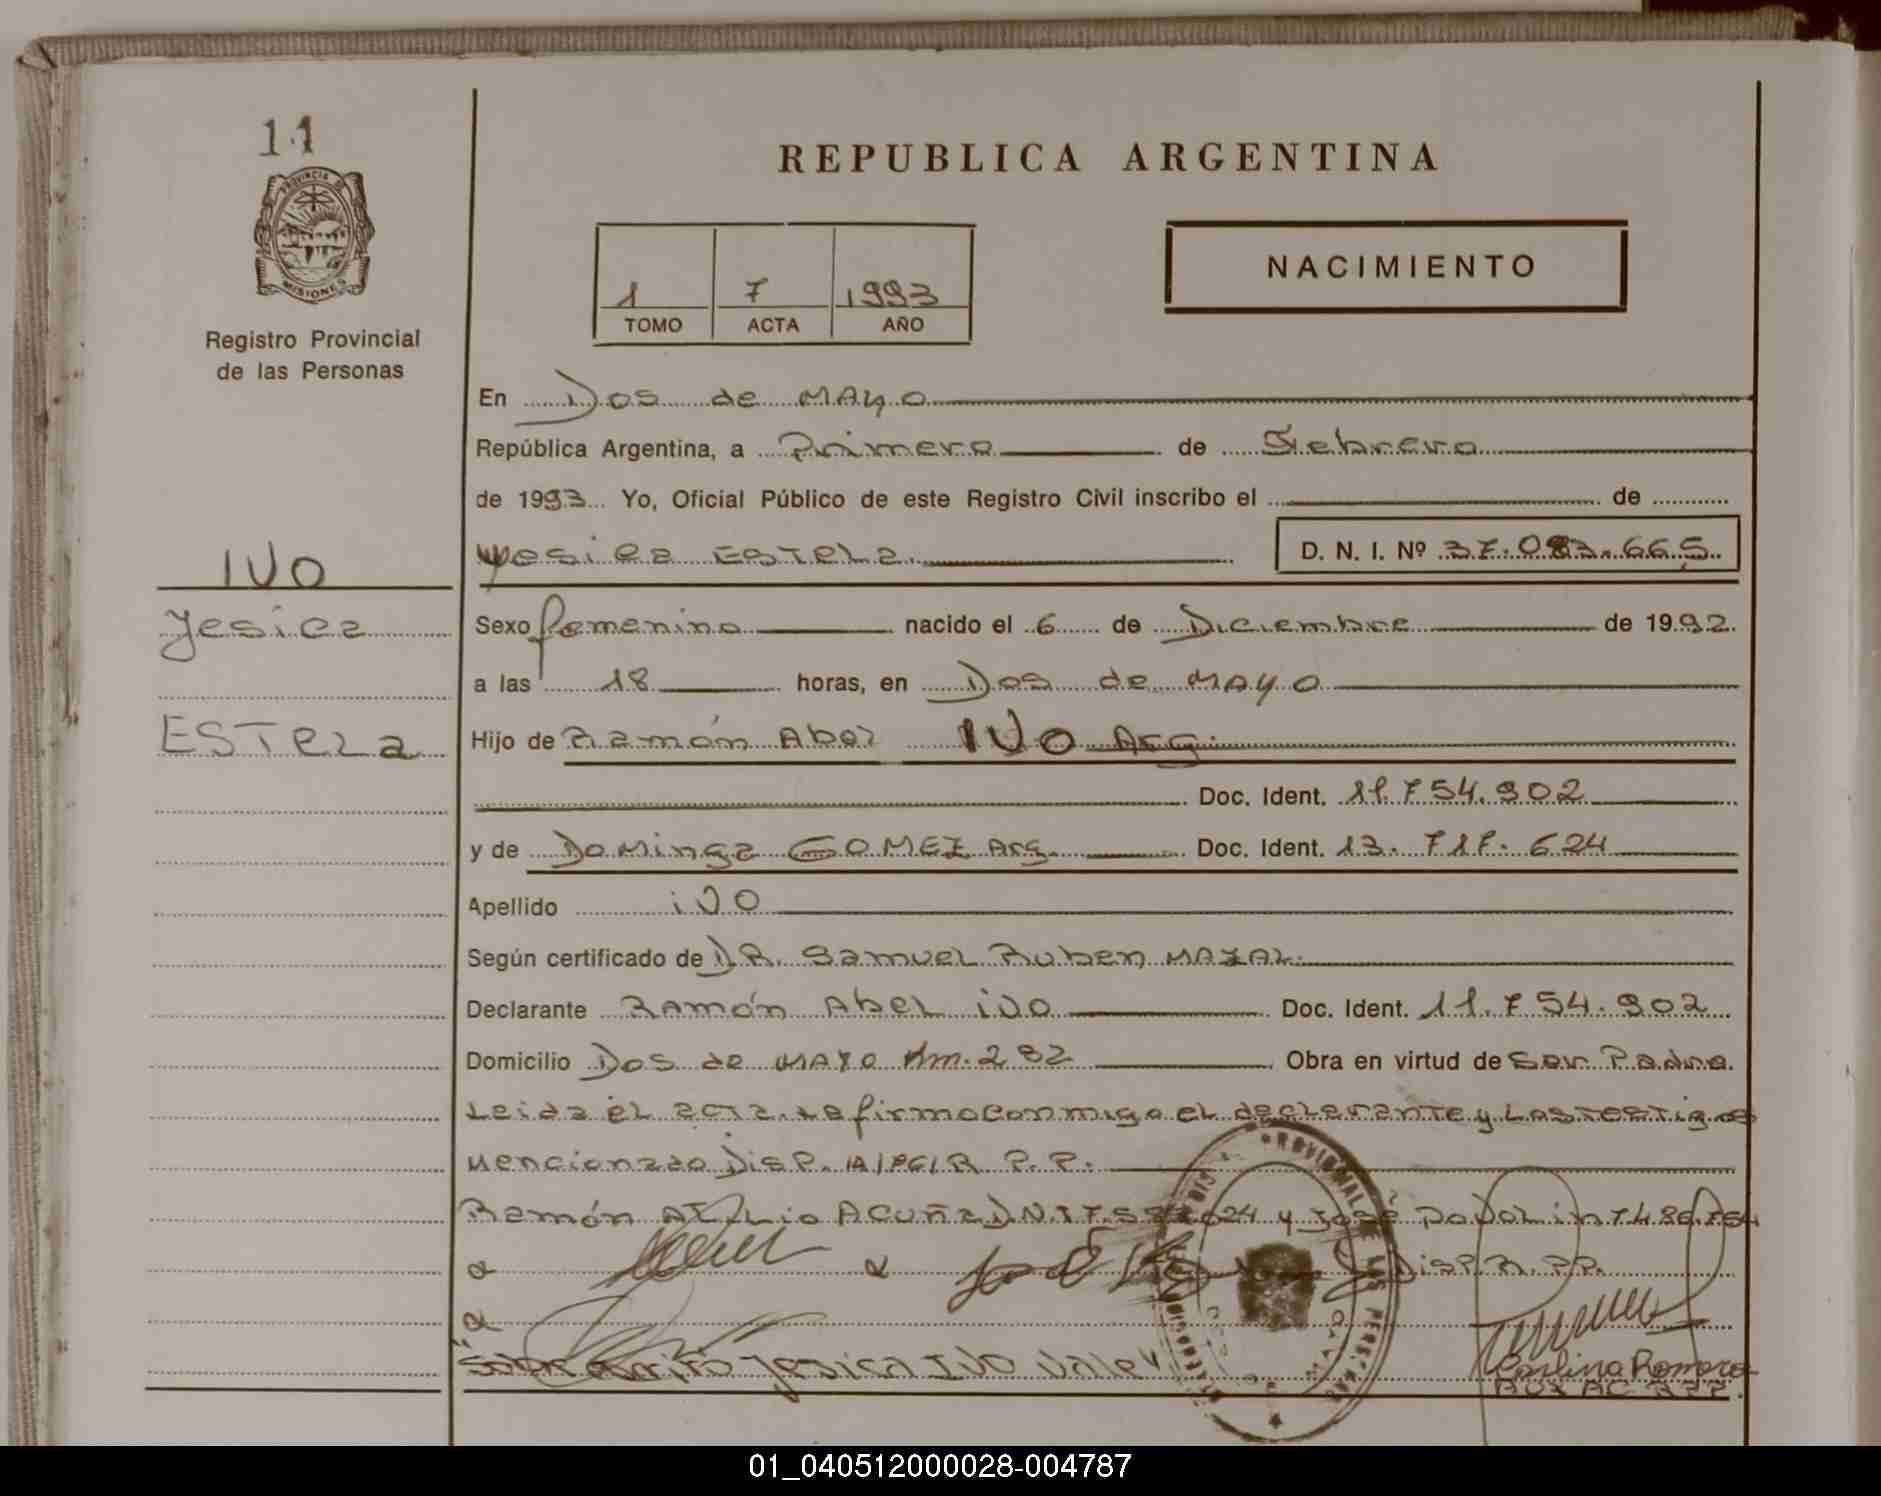 11
REPUBLICA ARGENTINA
PROVINCIA DE
MISIONES
Registro Provincial
de las Personas
1 7 1993
TOMO ACTA AÑO
NACIMIENTO
En Dos de MAyo
República Argentina, a Primero de Febrero
de 1993 Yo, Oficial Público de este Registro Civil inscribo el de
IVO
yesica ESTELa D. N. I. Nº 37.083.665
Yesica
Sexo femenino nacido el 6 de Diciembre de 1992
a las 18 horas, en Dos de MAyo
ESTELa
Hijo de Ramón Abel IVO Arg.
Doc. Ident. 11.754.902
y de Dominga GOMEZ Arg. Doc. Ident. 13.717.624
Apellido iVO
Según certificado de DR. Samuel Ruben MAZAL.
Declarante RAMÓN Abel iVO Doc. Ident. 11.754.902
Domicilio Dos de MAYO Km. 282 Obra en virtud de Ser Padre.
Leida el acta La firma conmigo el declarante y Los testigos
Mencionado Disp. R. P. P.
Ramón ATILio ACUÑa D.N.I 7. 024 y José DoVoLin 7.486.764
Disp. R. PP.
"Sobre Arrito Yesica IVO Vale"
Carlina Romero
AUX AC RPP.
PROVINCIAL DE LAS PERSONAS
01_040512000028-004787